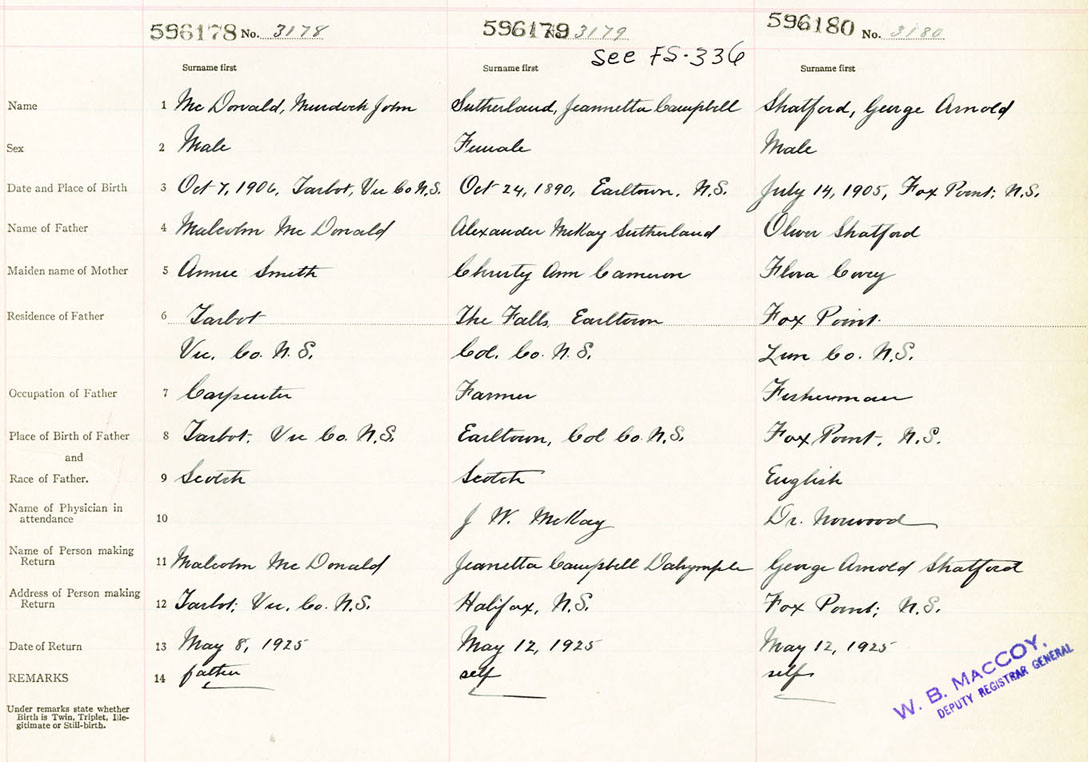 596178 No. 3178 596179 No. 3179 596180 No. 3180
See FS-336
Surname first Surname first Surname first
Name 1 Mc Donald, Murdock John Sutherland, Jeannetta Campbell Shatford, George Arnold
Sex 2 Male Female Male
Date and Place of Birth 3 Oct 7, 1906, Tarbot, Vic Co N.S. Oct 24, 1890, Earltown, N.S. July 14, 1905, Fox Point, N.S.
Name of Father 4 Malcolm Mc Donald Alexander McKay Sutherland Oliver Shatford
Maiden name of Mother 5 Annie Smith Christy Ann Cameron Flora Covey
Residence of Father 6 Tarbot The Falls, Earltown Fox Point.
Vic. Co. N.S. Col. Co. N.S. Lun Co. N.S.
Occupation of Father 7 Carpenter Farmer Fisherman
Place of Birth of Father 8 Tarbot, Vic Co. N.S. Earltown, Col Co. N.S. Fox Point, N.S.
and
Race of Father. 9 Scotch Scotch English
Name of Physician in
attendance 10 J W. McKay Dr. Norwood
Name of Person making
Return 11 Malcolm Mc Donald Jeanetta Campbell Dalrymple George Arnold Shatford
Address of Person making
Return 12 Tarbot, Vic. Co. N.S. Halifax, N.S. Fox Point, N.S.
Date of Return 13 May 8, 1925 May 12, 1925 May 12, 1925
REMARKS 14 father self self
W. B. MACCOY,
DEPUTY REGISTRAR GENERAL
Under remarks state whether
Birth is Twin, Triplet, Ille-
gitimate or Still-birth.